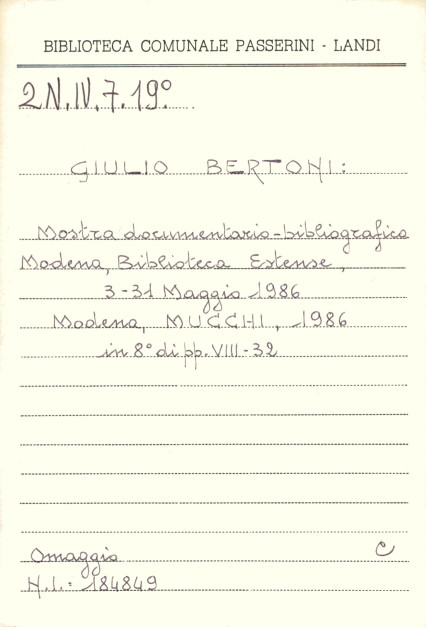 BIBLIOTECA COMUNALE PASSERINI - LANDI
2N.IV.7.19°
GIULIO BERTONI:
Mostra documentario-bibliografica
Modena, Biblioteca Estense,
3-31 Maggio 1986
Modena, MUCCHI, 1986
in 8° di pp. VIII-32
Omaggio C
N.I.: 184849